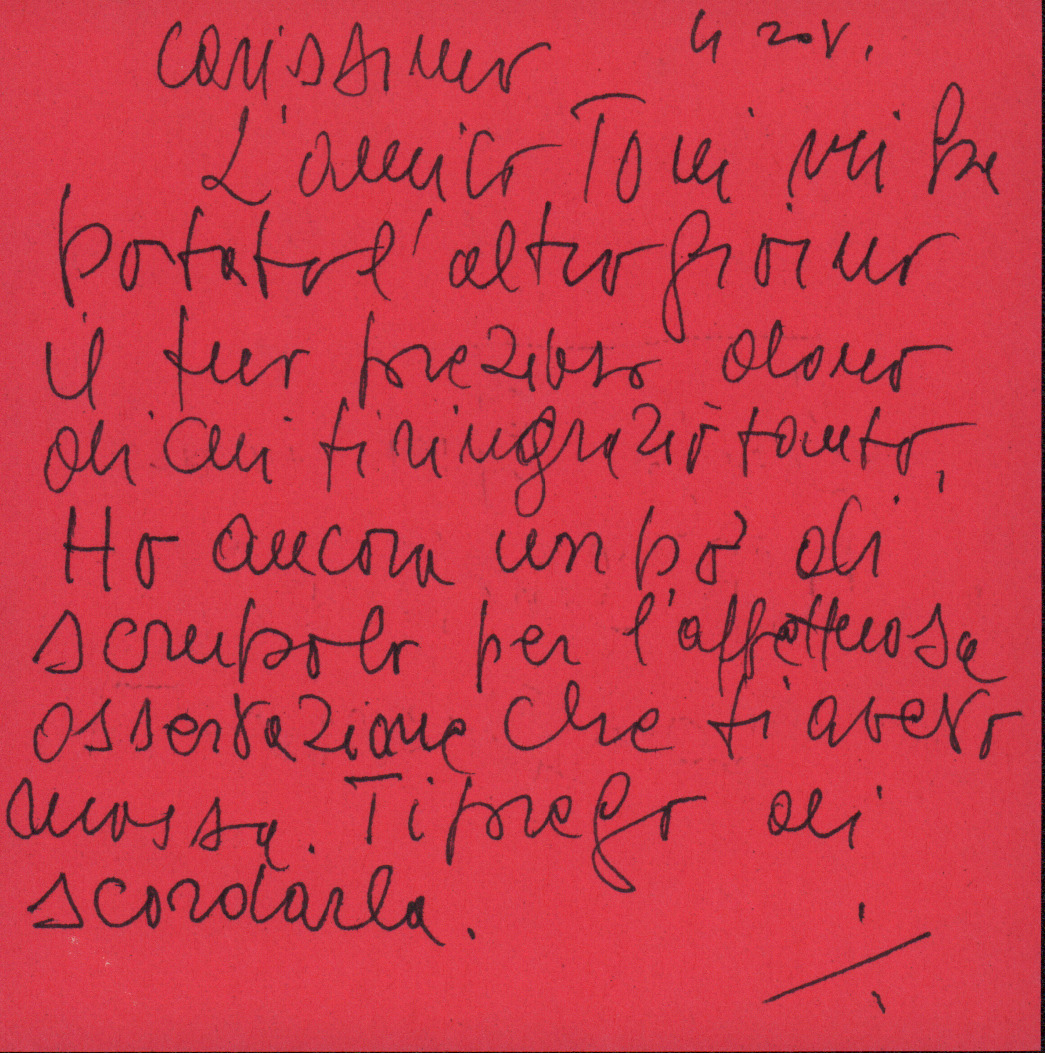 Carissimo 4 nov.
L'amico Toni mi ha
portato l'altro giorno
il tuo prezioso dono
di cui ti ringrazio tanto.
Ho ancora un pò di
scrupolo per l'affettuosa
osservazione che ti avevo
mossa. Ti prego di
scordarla.
./.